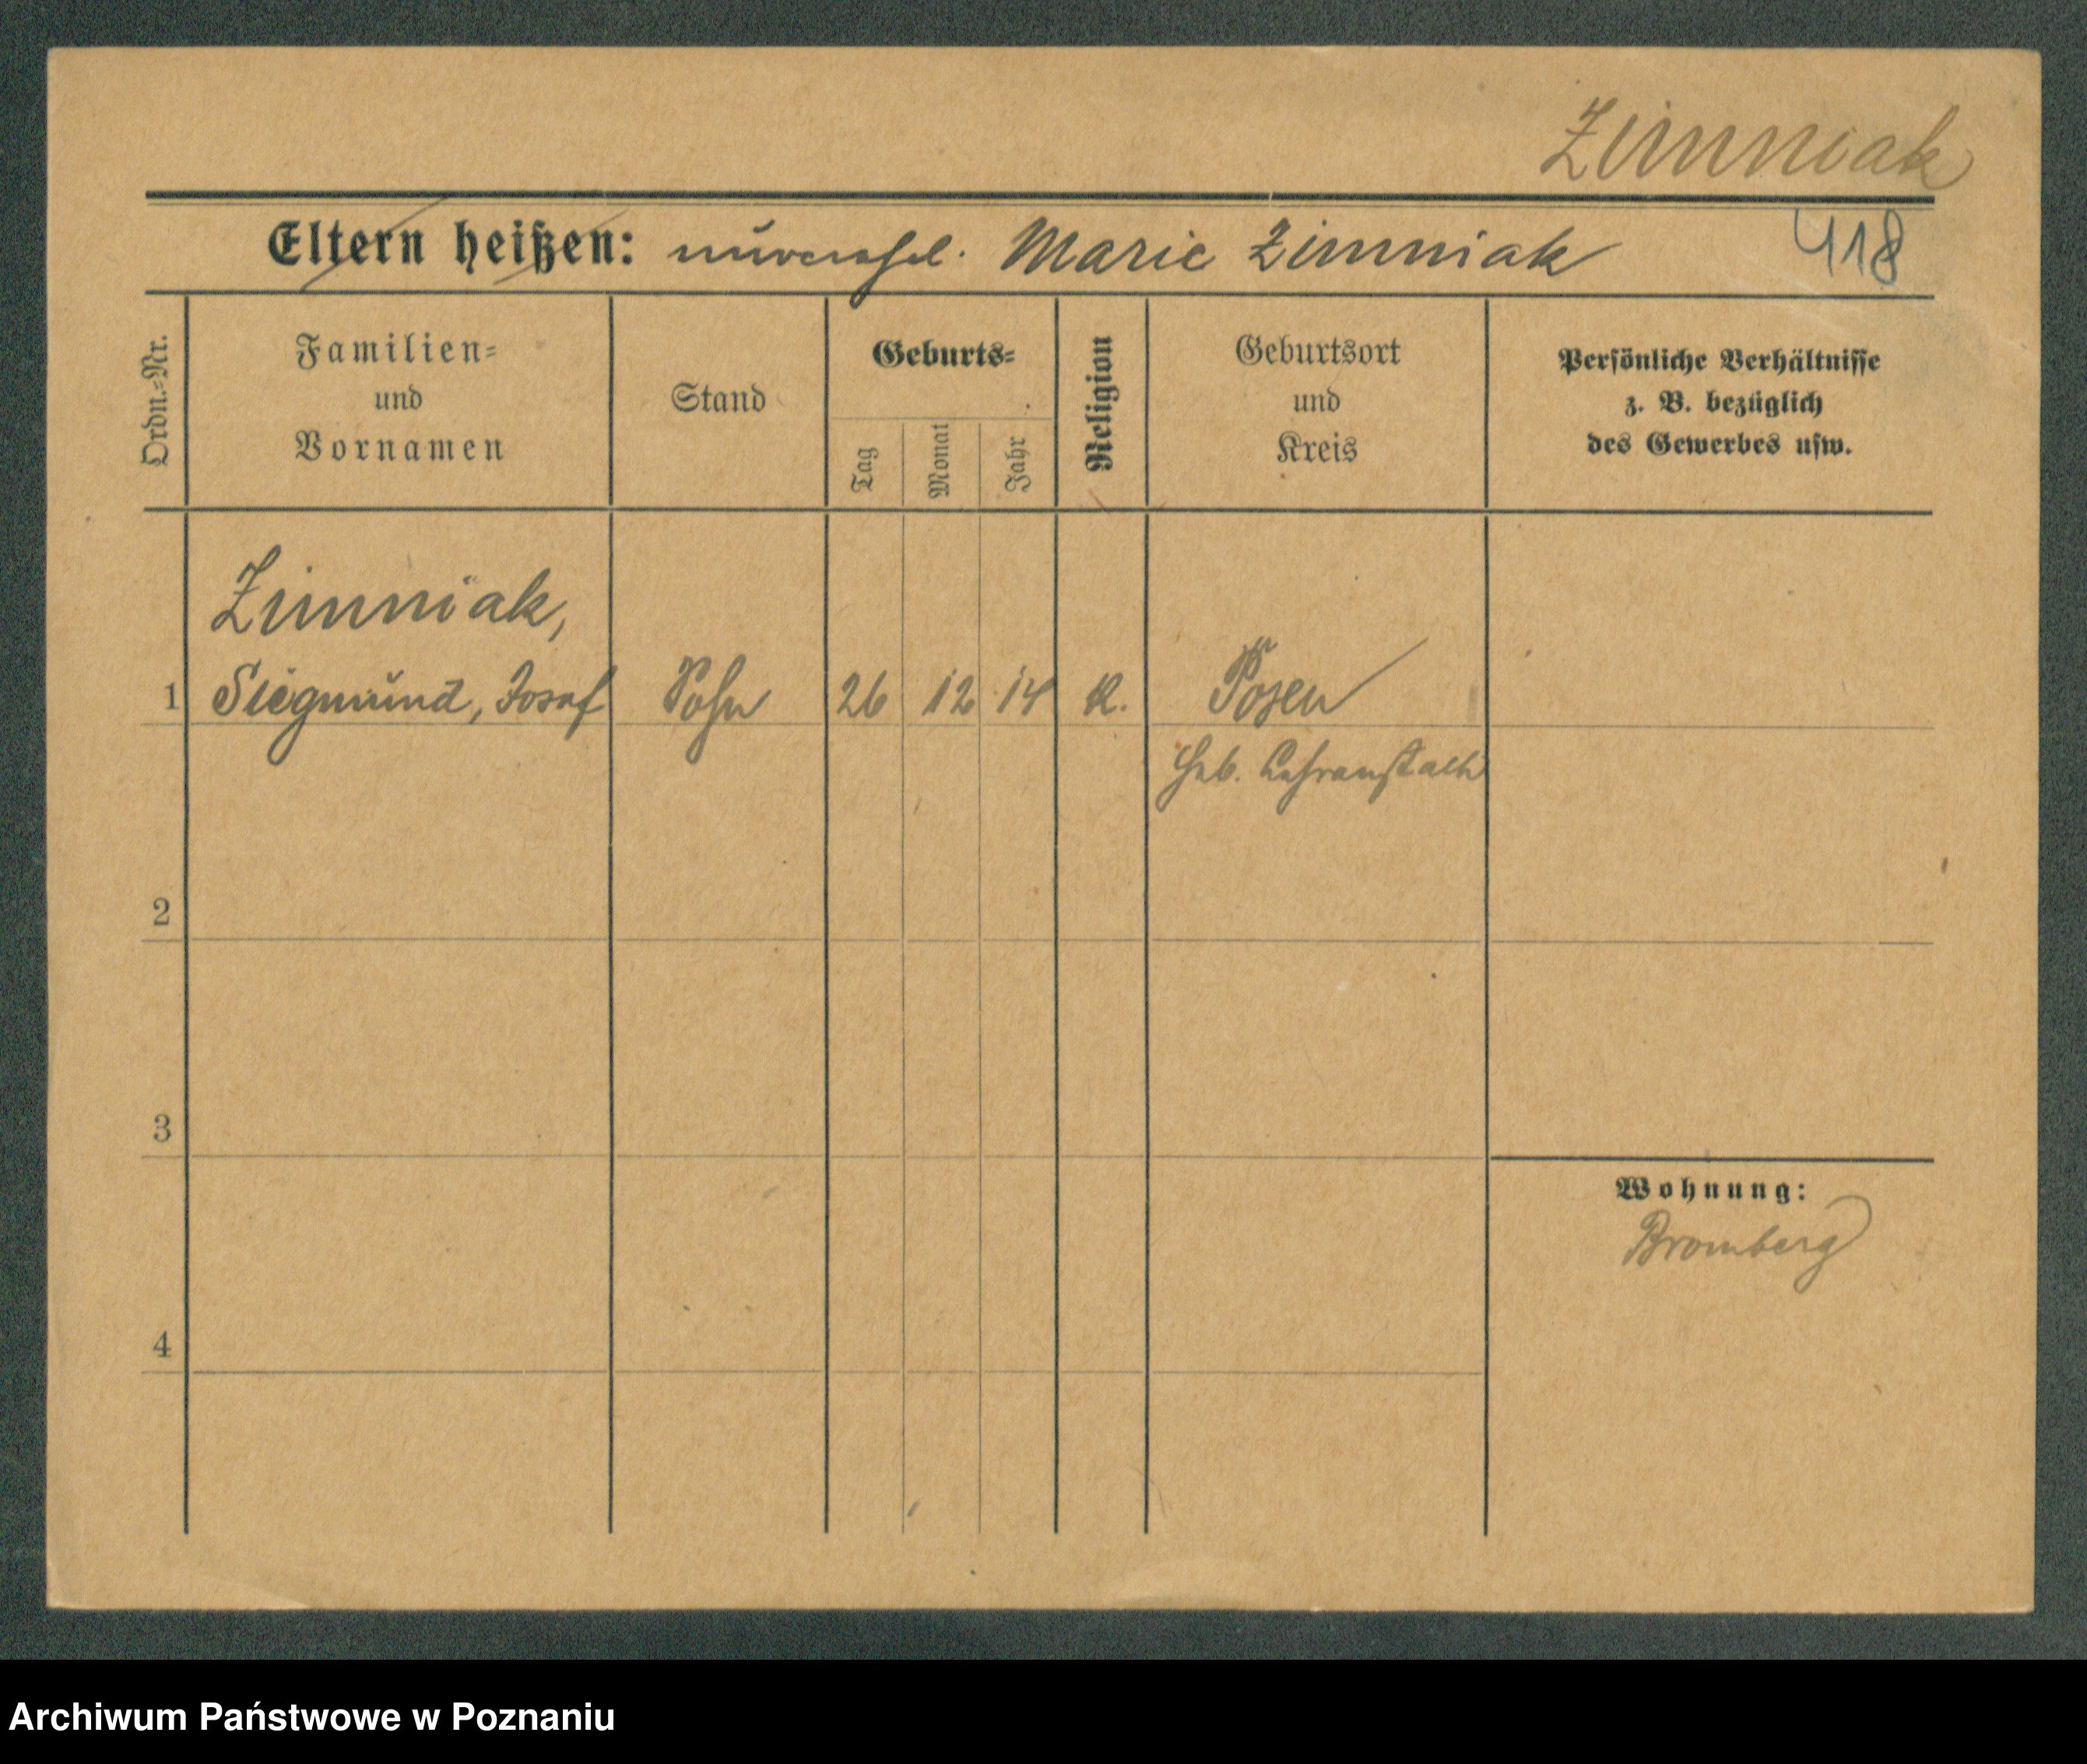 Zimniak
Eltern heißen: unverehel. Marie Zimniak 418
Ordn.-Nr.
Familien-
und
Vornamen
Stand
Geburts-
Tag
Monat
Jahr
Religion
Geburtsort
und
Kreis
Persönliche Verhältnisse
z. B. bezüglich
des Gewerbes usw.
Zimniak,
1 Siegmund, Josef Sohn 26 12 14 K. Posen
Heb. Lehranstalt
2
3
Wohnung:
Bromberg
4
Archiwum Państwowe w Poznaniu